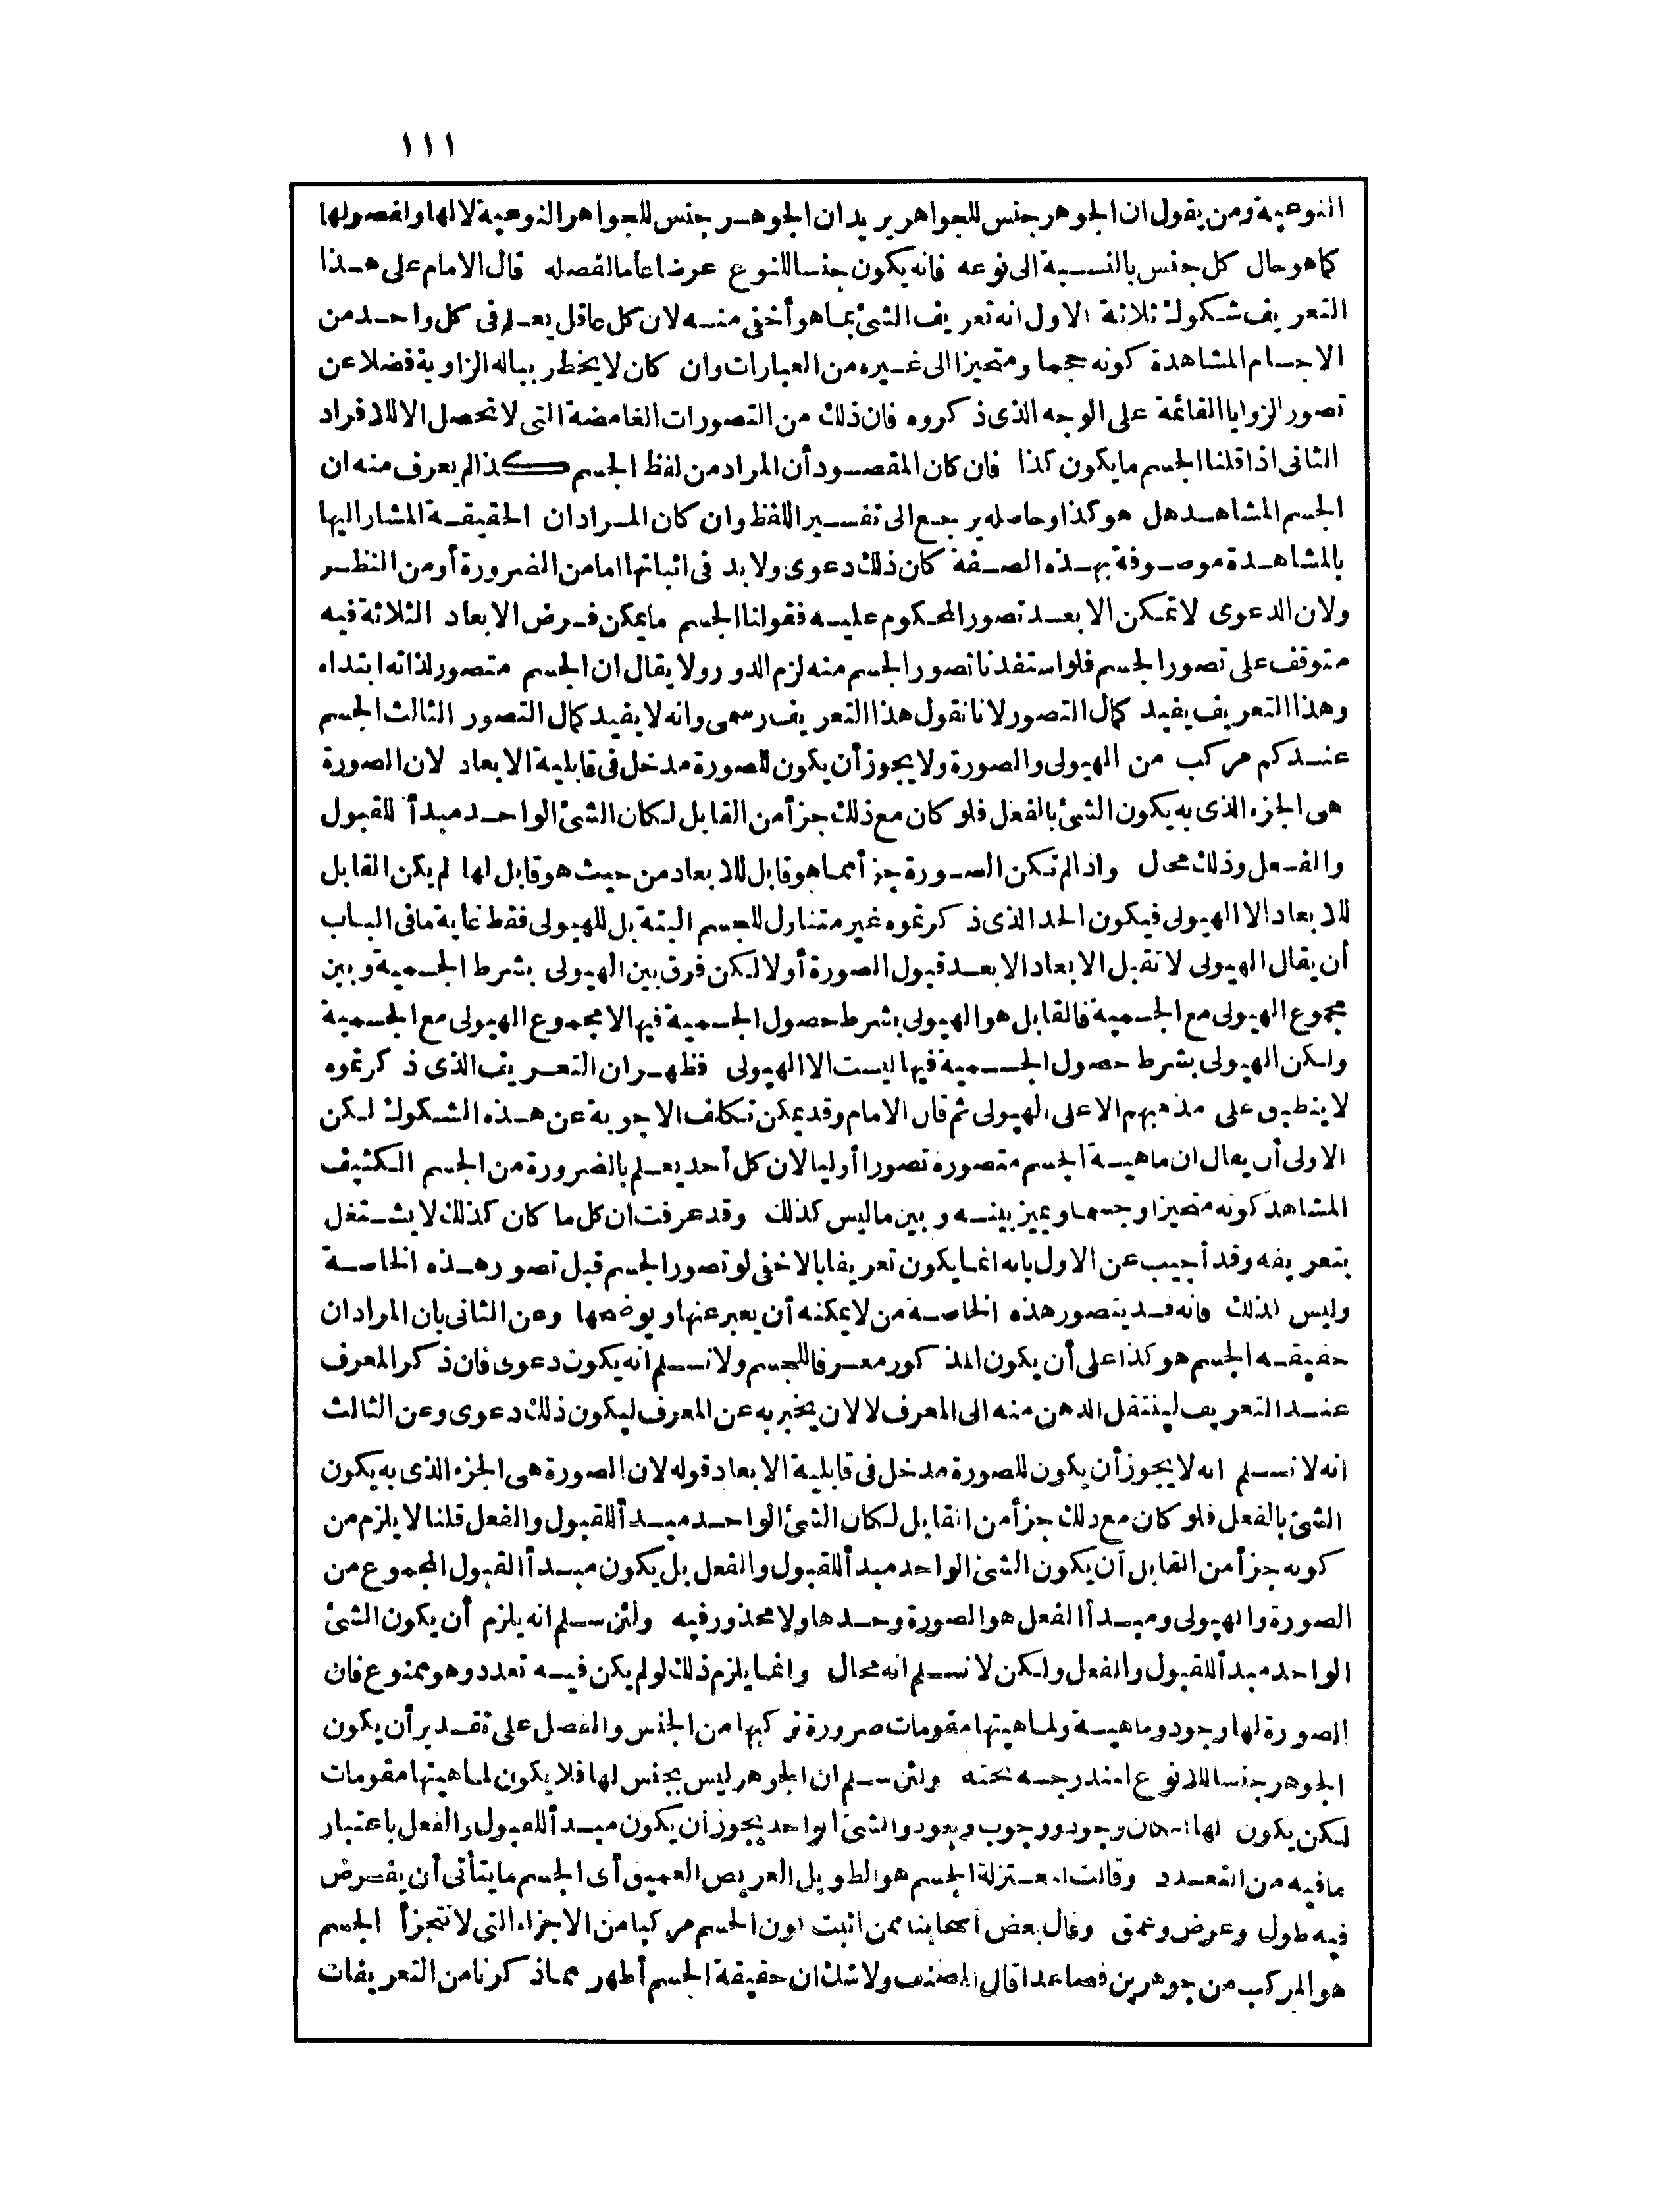 ١١١
النوعية ومن يقول ان الجوهر جنس للجواهر يريد ان الجوهر جنس للجواهر النوعية لا لها ولفصولها
كما هو حال كل جنس بالنسبة الى نوعه فانه يكون جنسا للنوع عرضا عاما لفصله قال الامام على هذا
التعريف شكوك ثلاثة الاول انه تعريف الشئ بما هو أخفى منه لان كل عاقل يعلم فى كل واحد من
الاجسام المشاهدة كونه حجما ومتحيزا الى غيره من العبارات وان كان لا يخطر بباله الزاوية فضلا عن
تصور الزوايا القائمة على الوجه الذى ذكروه فان ذلك من التصورات الغامضة التى لا تحصل الا للافراد
الثانى اذا قلنا الجسم ما يكون كذا فان كان المقصود أن المراد من لفظ الجسم كذا لم يعرف منه ان
الجسم المشاهد هل هو كذا وحاصله يرجع الى تفسير اللفظ وان كان المراد ان الحقيقة المشار اليها
بالمشاهدة موصوفة بهذه الصفة كان ذلك دعوى ولا بد فى اثباتها اما من الضرورة أو من النظر
ولان الدعوى لا تمكن الا بعد تصور المحكوم عليه فقولنا الجسم ما يمكن فرض الابعاد الثلاثة فيه
متوقف على تصور الجسم فلو استفدنا تصور الجسم منه لزم الدور ولا يقال ان الجسم متصور لذاته ابتداء
وهذا التعريف يفيد كمال التصور لانا نقول هذا التعريف رسمى وانه لا يفيد كمال التصور الثالث الجسم
عندكم مركب من الهيولى والصورة ولا يجوز أن يكون للصورة مدخل فى قابلية الابعاد لان الصورة
هى الجزء الذى به يكون الشئ بالفعل فلو كان مع ذلك جزأ من القابل لكان الشئ الواحد مبدأ للقبول
والفعل وذلك محال واذا لم تكن الصورة جزأ مما هو قابل للابعاد من حيث هو قابل لها لم يكن القابل
للابعاد الا الهيولى فيكون الحد الذى ذكرتموه غير متناول للجسم البتة بل للهيولى فقط غاية ما فى الباب
أن يقال الهيولى لا تقبل الابعاد الا بعد قبول الصورة أولا لكن فرق بين الهيولى بشرط الجسمية وبين
مجموع الهيولى مع الجسمية فالقابل هو الهيولى بشرط حصول الجسمية فيها لا مجموع الهيولى مع الجسمية
ولكن الهيولى بشرط حصول الجسمية فيها ليست الا الهيولى فظهر ان التعريف الذى ذكرتموه
لا ينطبق على مذهبهم الا على الهيولى ثم قال الامام وقد يمكن تكلف الاجوبة عن هذه الشكوك لكن
الاولى أن يقال ان ماهية الجسم متصورة تصورا أوليا لان كل أحد يعلم بالضرورة من الجسم الكثيف
المشاهد كونه متحيزا وجسما ويميز بينه وبين ما ليس كذلك وقد عرفت ان كل ما كان كذلك لا يشتغل
بتعريفه وقد أجيب عن الاول بانه انما يكون تعريفا بالاخفى لو تصور الجسم قبل تصور هذه الخاصة
وليس كذلك فانه قد يتصور هذه الخاصة من لا يمكنه أن يعبر عنها ويوضحها وعن الثانى بان المراد ان
حقيقة الجسم هو كذا على أن يكون المذكور معرفا للجسم ولا نسلم انه يكون دعوى فان ذكر المعرف
عند التعريف لينتقل الذهن منه الى المعرف لا لان يخبر به عن المعرف ليكون ذلك دعوى وعن الثالث
انه لا نسلم انه لا يجوز أن يكون للصورة مدخل فى قابلية الابعاد قوله لان الصورة هى الجزء الذى به يكون
الشئ بالفعل فلو كان مع ذلك جزأ من القابل لكان الشئ الواحد مبدأ للقبول والفعل قلنا لا يلزم من
كونه جزأ من القابل أن يكون الشئ الواحد مبدأ للقبول والفعل بل يكون مبدأ القبول المجموع من
الصورة والهيولى ومبدأ الفعل هو الصورة وحدها ولا محذور فيه ولئن سلم انه يلزم أن يكون الشئ
الواحد مبدأ للقبول والفعل ولكن لا نسلم انه محال وانما يلزم ذلك لو لم يكن فيه تعدد وهو ممنوع فان
الصورة لها وجود وماهية ولماهيتها مقومات ضرورة تركبها من الجنس والفصل على تقدير أن يكون
الجوهر جنسا للانواع المندرجة تحته ولئن سلم ان الجوهر ليس بجنس لها فلا يكون لماهيتها مقومات
لكن يكون لها امكان وجود ووجوب وجود والشئ الواحد يجوز أن يكون مبدأ للقبول والفعل باعتبار
ما فيه من التعدد وقالت المعتزلة الجسم هو الطويل العريض العميق أى الجسم ما يتأتى أن يفرض
فيه طول وعرض وعمق وقال بعض أصحابنا ممن أثبت كون الجسم مركبا من الاجزاء التى لا تتجزأ الجسم
هو المركب من جوهرين فصاعدا قال المصنف ولا شك ان حقيقة الجسم أظهر مما ذكرنا من التعريفات